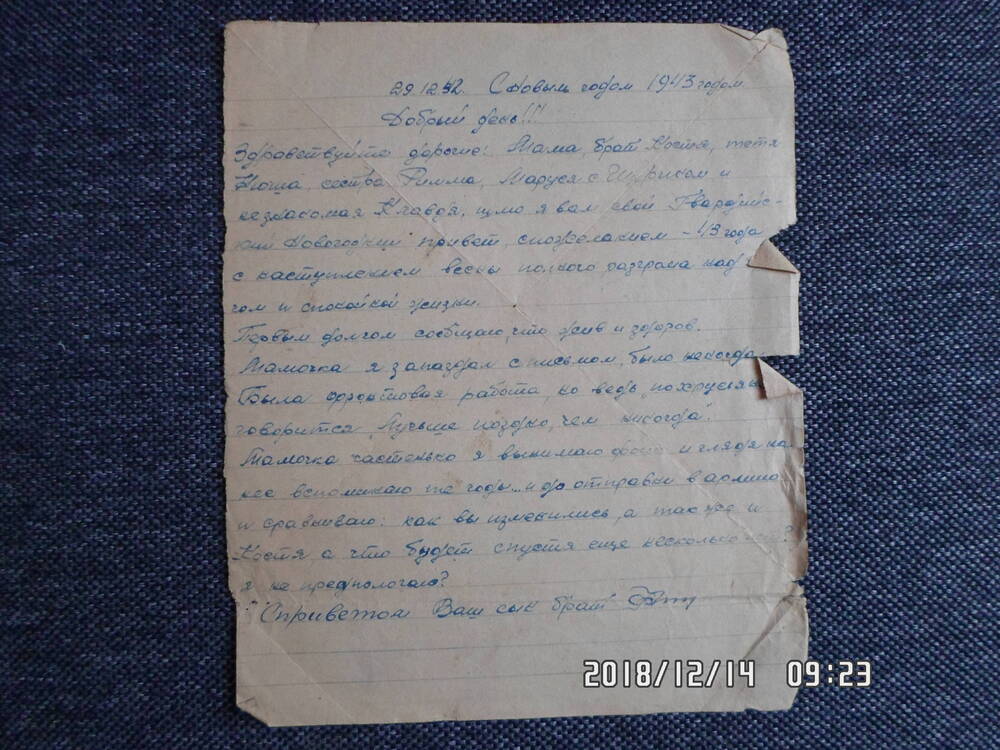 29.12.42. С Новым годом 1943 годом
Добрый день!!!
Здравствуйте дорогие: Мама, брат Костя, тетя
Нюша, сестра Римма, Маруся с Шуриком и
незнакомая Клавдя, шлю я вам свой Гвардийс-
кий Новогодний привет, спожеланием - 43 года
с наступлением весны полного разгрома над
гом и спокойной жизни.
Первым долгом сообщаю, что жив и здоров.
Мамочка я запаздал списьмом, было некогда.
Была фронтовая работа, но ведь, похрусяки
говорится „Лучьше поздно, чем никогда".
Мамочка частенько я вынимаю фото и глядя на
нее вспоминаю те годы... и до отправки в армию
и сравниваю: как вы изменились, а так же и
Костя а что будет спустя еще несколько лет?
я не предпологаю?
Сприветом Ваш сын брат
2018/12/14 09:23